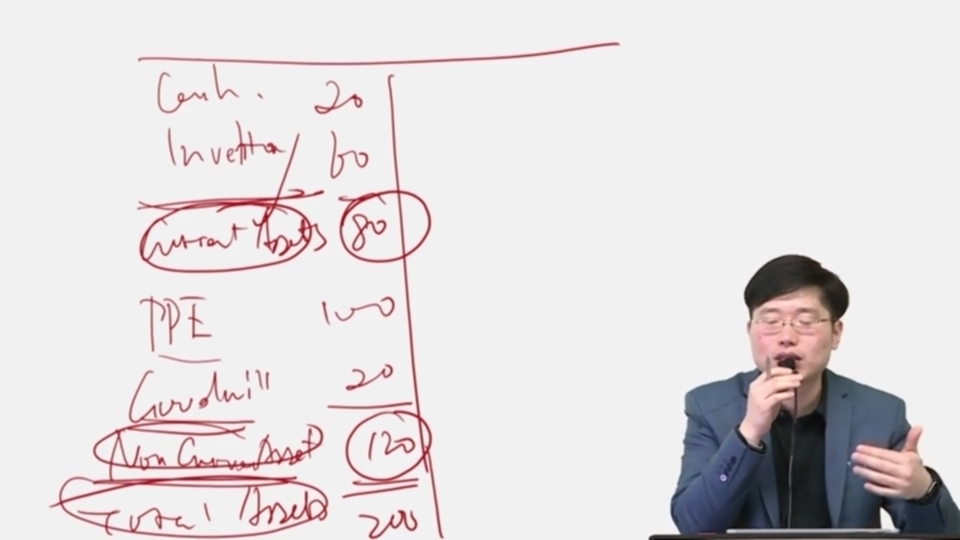 Cash. 20
Inventory 60
Current Assets 80
PPE 100
Goodwill 20
Non Current Asset 120
Total Assets 200